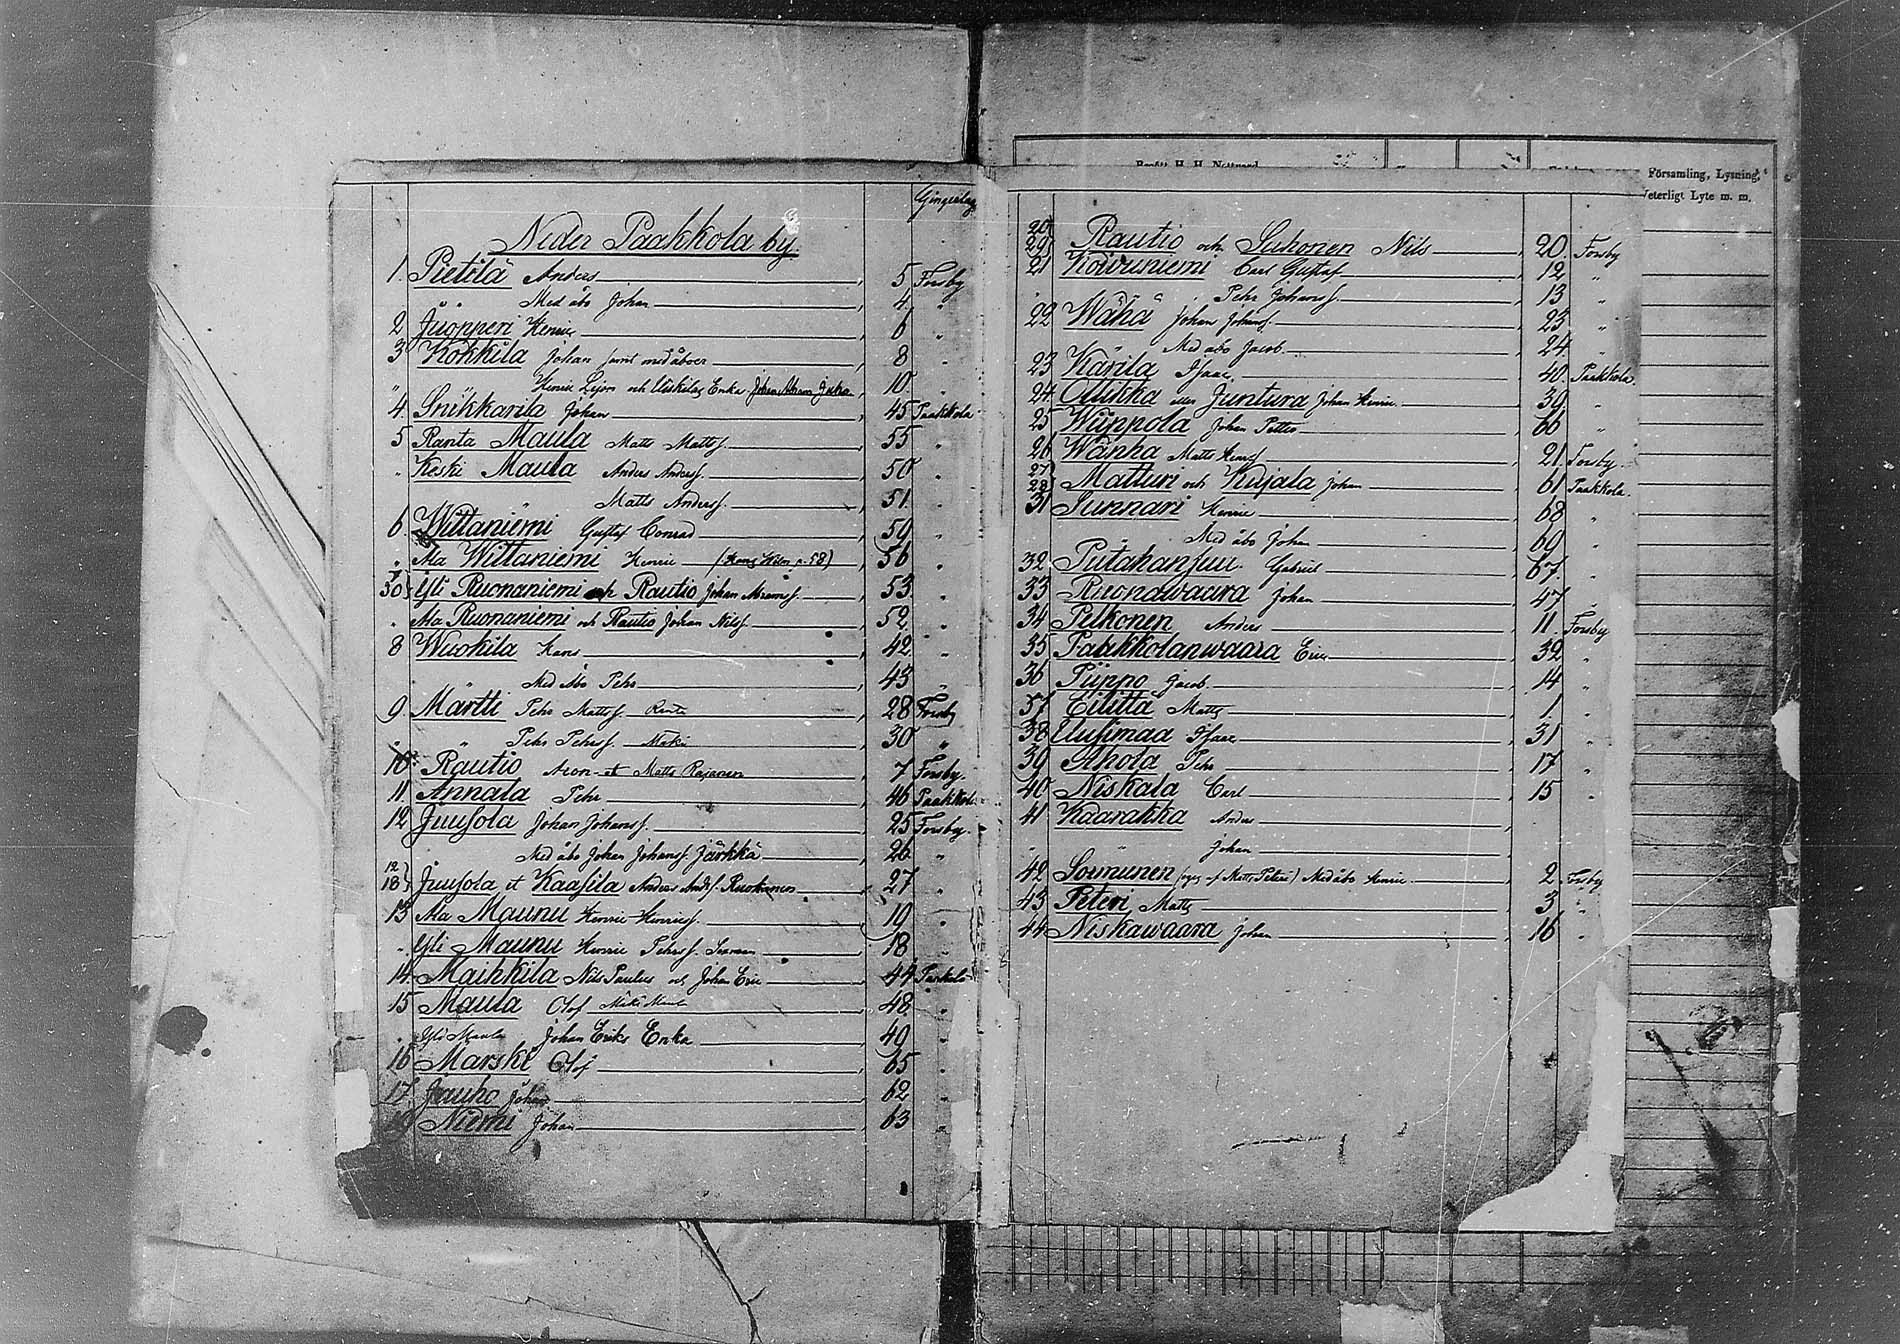 Neder Paakkola by.
1. Pietilä Anders 5 Forsby
Med åbo Johan 4 "
2 Juopperi Henric 6 "
3 Kokkila Johan samt med åboer 8 "
" Henric och Enka 10 "
4. Snikkarila Johan 45 Paakkola
5 Ranta Maula Matts Mattss. 55 "
" Keski Maula Anders Anderss. 50 "
" Matts Anderss. 51 "
6. Wittaniemi Gustaf Conrad 59 "
" Ala Wittaniemi Henric 56 "
30 Yli Ruonaniemi och Rautio Johan 53 "
" Ala Ruonaniemi och Rautio Johan Nilss. 52 "
8 Wuokila Hans 42 "
" Med åbo Pehr 43 "
9. Martti Pehr Mattss. Ranta 28 Forsby
" " Pehr Pehrss. Mäki 30 "
10 Rautio Aron et Matts 7 Forsby.
11. Annala Pehr 46 Paakkola
12 Juusola Johan Johanss. 25 Forsby.
Med åbo Johan Johanss. Järkkä 26 "
12
18} Juusola et Kaasila Anders Anderss. 27 "
13 Ala Maunu Henric Henricss. 19 "
" Yli Maunu Henric Pehrss. 18 "
14. Maihkila Nils Paulus och Johan Eric 44 Paakkola
15 Maula Olof Mäki Maula 48 "
" Yli Maula Johan Eriks Enka 49 "
16 Marski Olof 65 "
17. Jauho Johan 62 "
19 Niemi Johan 63 "
Församling, Lysning,
Veterligt Lyte m. m.
20
29} Rautio och Suhonen Nils 20. Forsby
21 Koivuniemi Carl Gustaf 12 "
" Pehr Johanss. 13 "
22 Wähä Johan Johanss. 23 "
" Med åbo Jacob 24. "
23 Karila Isaac 40. Paakkola
24. Ollikka eller Juntura Johan Henric 39 "
25 Wiippola Johan Petter 66 "
26 Wänha Matts 21. Forsby.
27
28} Matturi och Kujala Johan 61 Paakkola.
31 Sunnari Henric 68 "
Med åbo Johan 69 "
32 Putahansuu Gabriel 67. "
33 Ruonawaara Johan 47 "
34 Pelkonen Anders 11 Forsby
35 Paakkolanwaara Eric 32 "
36 Piippo Jacob 14 "
37 Eilittä Matts 1 "
38 Uusimaa Isaac 31 "
39 Ahola Pehr 17 "
40 Niskala Carl 15 "
41 Kaarakka Anders
" " Johan
42. Sormunen Med åbo Henric 2 Forsby
43 Peteri Matts 3 "
44 Niskawaara Johan 16 "